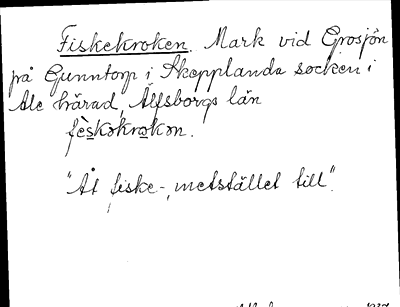 Fiskekroken. Mark vid Grosjön
på Gunntorp i Skepplanda socken i
Ale härad, Älfsborgs län
fèskəkrokən.
"Åt fiske-, metstället till".